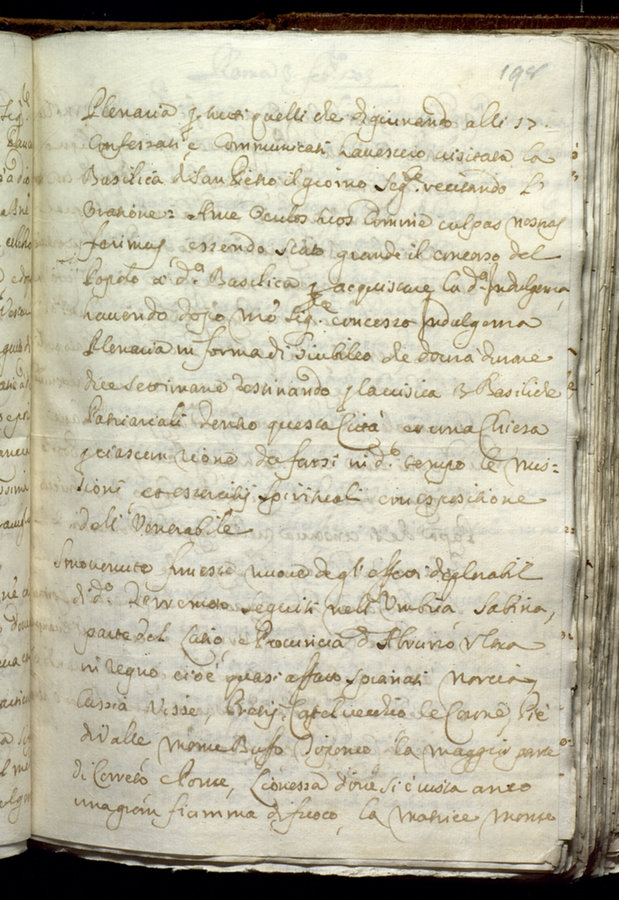 198
Plenaria p tutti quelli che digiunando alli 17
Confessati, e Communicati havessero visitata la
Basilica di San Pietro il giorno seg.te recitando l'
Oratione: Ante Oculos tuos Domine culpas nostras
ferimus, essendo stato grande il concorso del
Popolo a d.a Basilica p acquistare la d.a Indulgenza,
havendo doppo N.ro Sig.re concesso Indulgenza
Plenaria in forma di Giubileo che dovrà durare
due settimane destinando p la visita 3 Basiliche
Patriarcali dentro questa Città et una Chiesa
p ciascun rione da farsi in d.o tempo le mis=
sioni et essercitij spirituali con espositione
del Venerabile
Sono venute funeste nuove degl'effetti deplorabili
di d.o Terremoto seguiti nell'Umbria, Sabina,
parte del Latio, e Provincia d'Abruzzo Ultra
in regno cioè quasi affatto spianati Norcia,
Cassia Visse, Castelvecchio le Corone, Piè
di Valle Monte Bufo la maggior parte
di Cerreto Ponte, dove si è vista anco
una gran fiamma di fuoco, la Matrice Monte